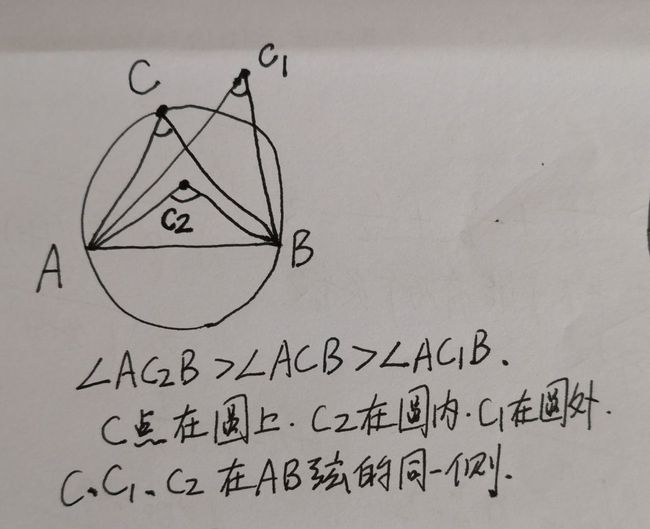 C
C₁
C₂
A
B
∠AC₂B>∠ACB>∠AC₁B.
C点在圆上.C₂在圆内.C₁在圆外.
C、C₁、C₂在AB弦的同一侧.